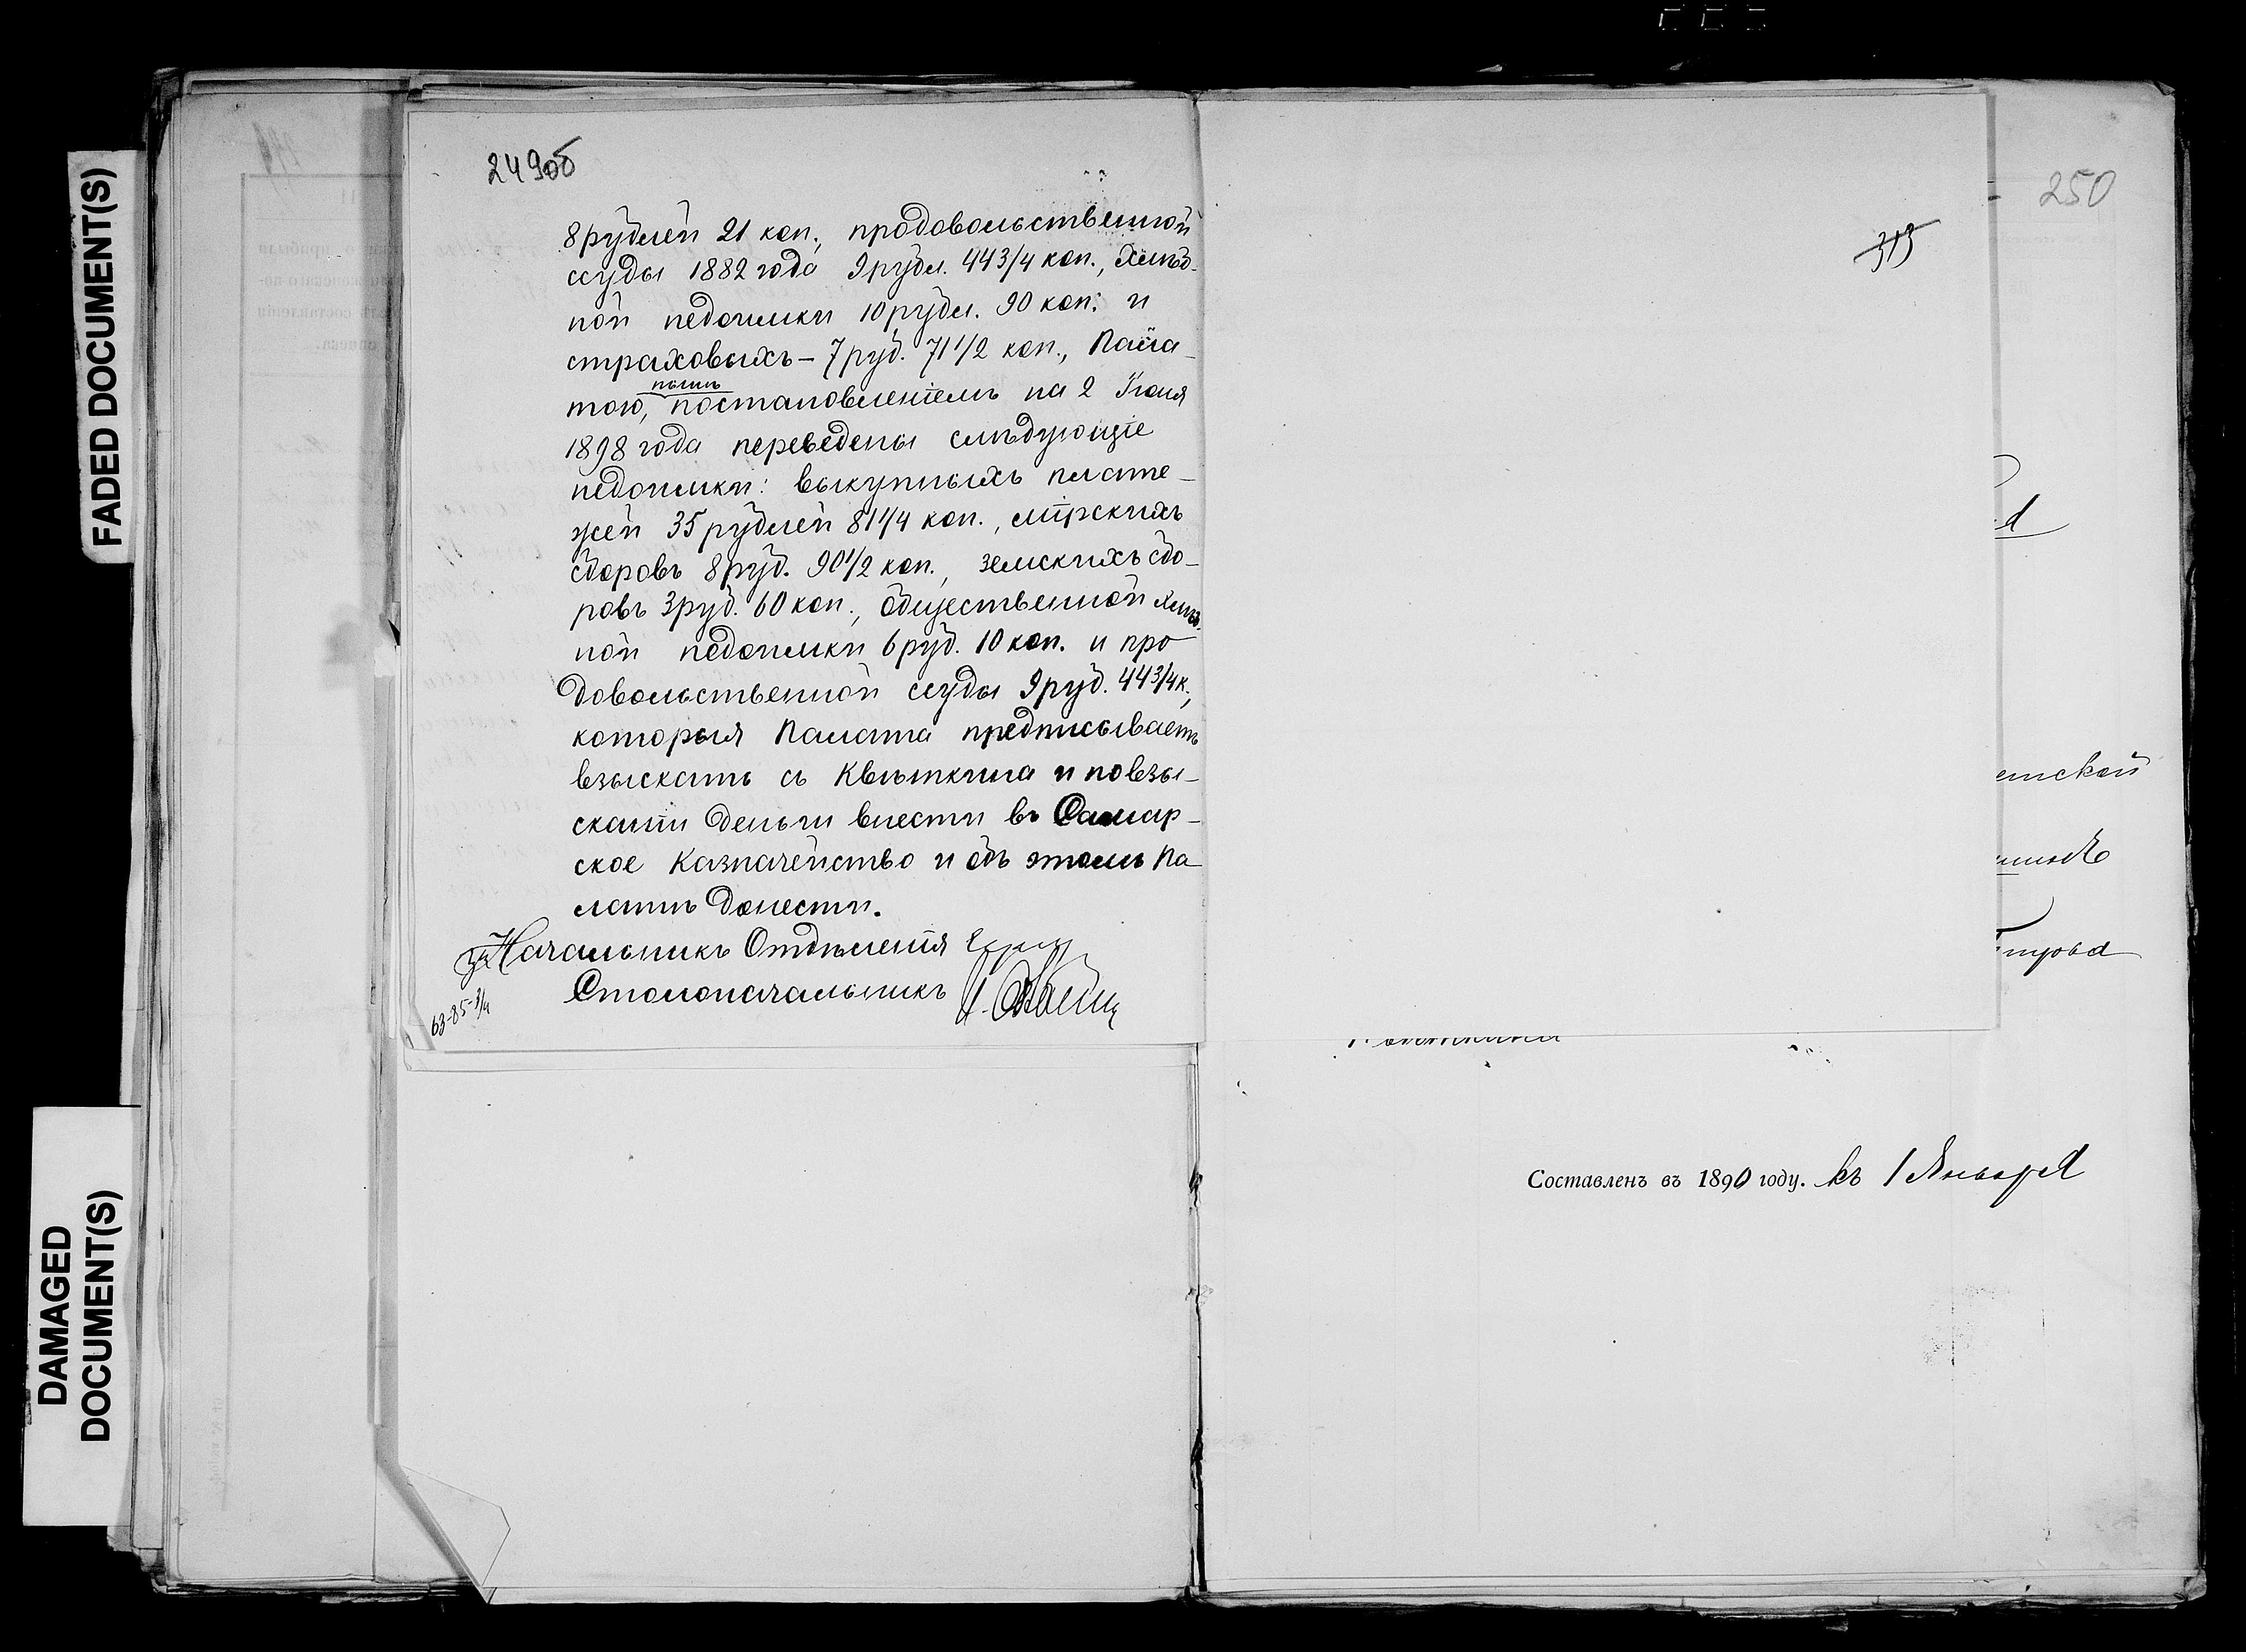 FADED DOCUMENT(S)
DAMAGED
DOCUMENT(S)
249об
8 рублей 21 коп., продовольственной
ссуды 1882 года 9 рубл. 44 3/4 коп., хлѣб-
ной недоимки 10 рубл. 90 коп. и
страховыхъ – 7 руб. 71 1/2 коп., Пала-
тою, постановленіемъ на 2 Іюня
1898 года переведены слѣдующіе
недоимки: выкупныхъ плате-
жей 35 рублей 81 1/4 коп., мірскихъ
сборовъ 8 руб. 90 1/2 коп., земскихъ сбо-
ровъ 3 руб. 60 коп., общественной хлѣб.
ной недоимки 6 руб. 10 коп. и про
довольственной ссуды 9 руб. 44 3/4 к.,
которыя Палата предписываетъ
взыскать съ Квѣткина и по взы-
скании деньги внести въ Самар-
ское Казначейство и объ этомъ Па-
латѣ донести.
Начальникъ Отдѣленія
Столоначальникъ
63-85-3/4
250
313
Составленъ въ 1890 году. къ 1 Января